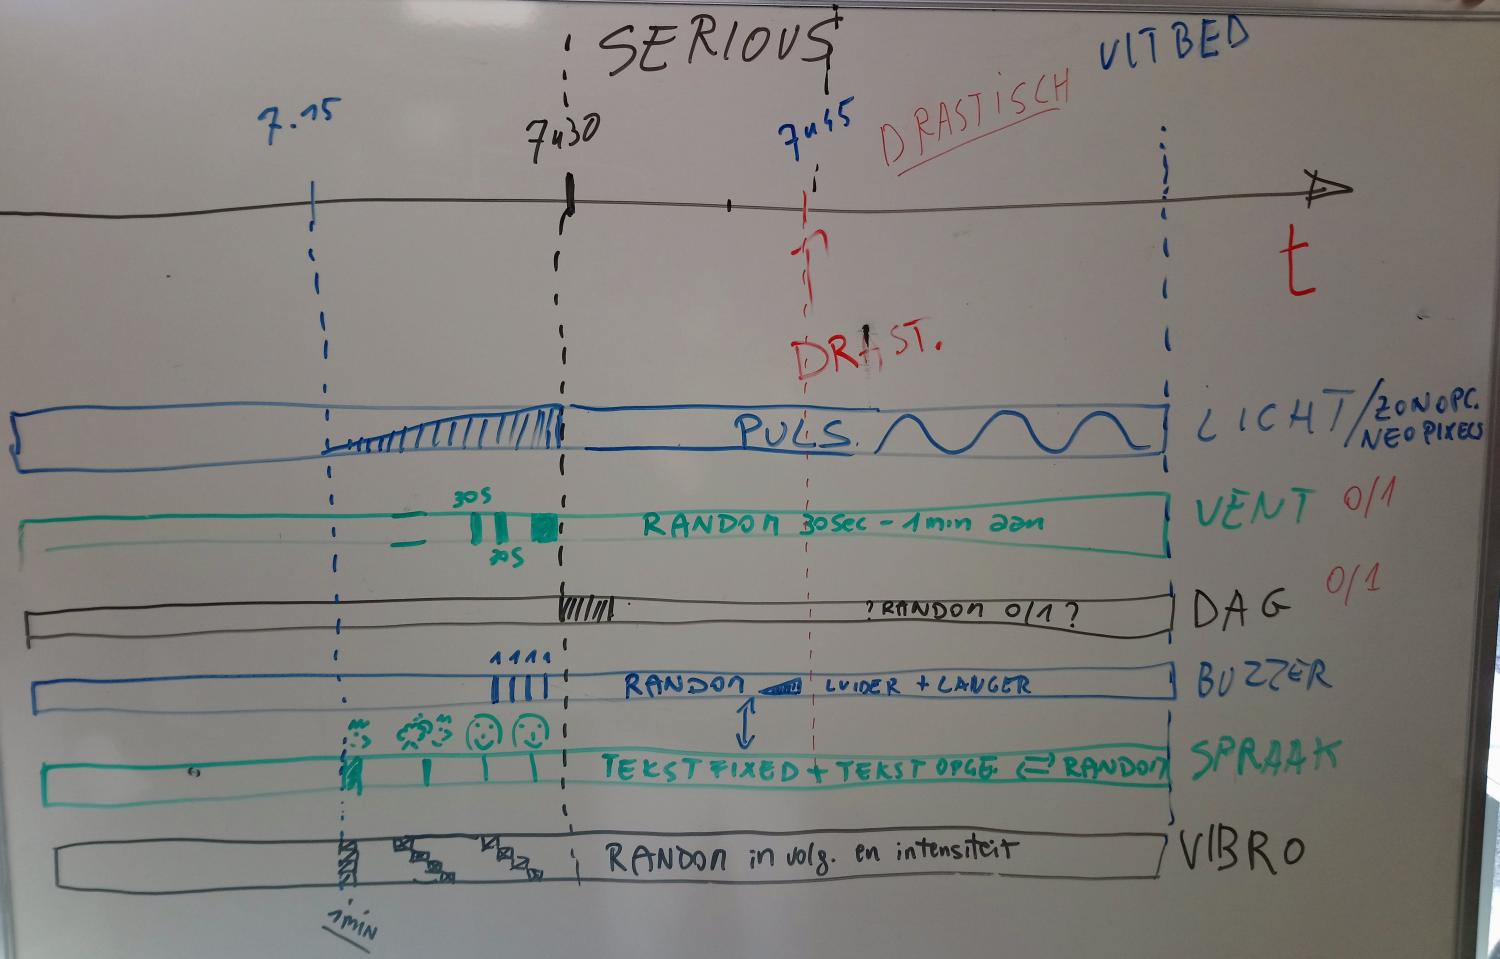 SERIOUS
UITBED
7.15
7u30
7u45
DRASTISCH
t
DRAST.
PULS.
LICHT/ZONOPC.
NEOPIXELS
30S
RANDOM 30sec - 1min aan
VENT 0/1
30S
?RANDOM 0/1?
DAG 0/1
1 1 1 1
RANDOM LUIDER + LANGER
BUZZER
TEKST FIXED + TEKST OPGE. ⇄ RANDOM
SPRAAK
RANDOM in volg. en intensiteit
VIBRO
1min